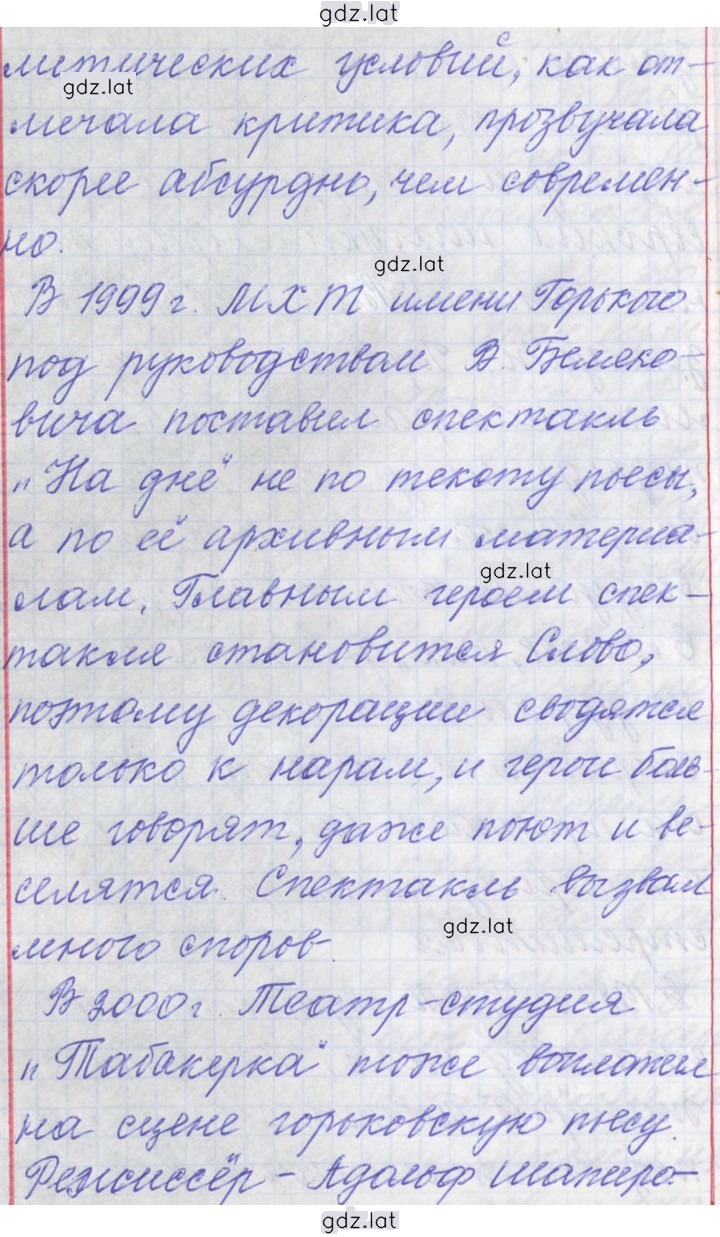 gdz.lat
литических условий, как от-
gdz.lat
мечала критика, прозвучала
скорее абсурдно, чем современ-
но.
gdz.lat
В 1999 г. МХТ имени Горького
под руководством В. Беляко-
вича поставил спектакль
„На дне" не по тексту пьесы,
а по её архивным материа-
gdz.lat
лам. Главным героем спек-
такля становится Слово,
поэтому декорации сводятся
только к нарам, и герои боль-
ше говорят, даже поют и ве-
селятся. Спектакль вызвал
gdz.lat
много споров.
В 2000 г. Театр-студия
„Табакерка" тоже воплотил
на сцене горьковскую пьесу.
Режиссёр - Адольф Шапиро-
gdz.lat